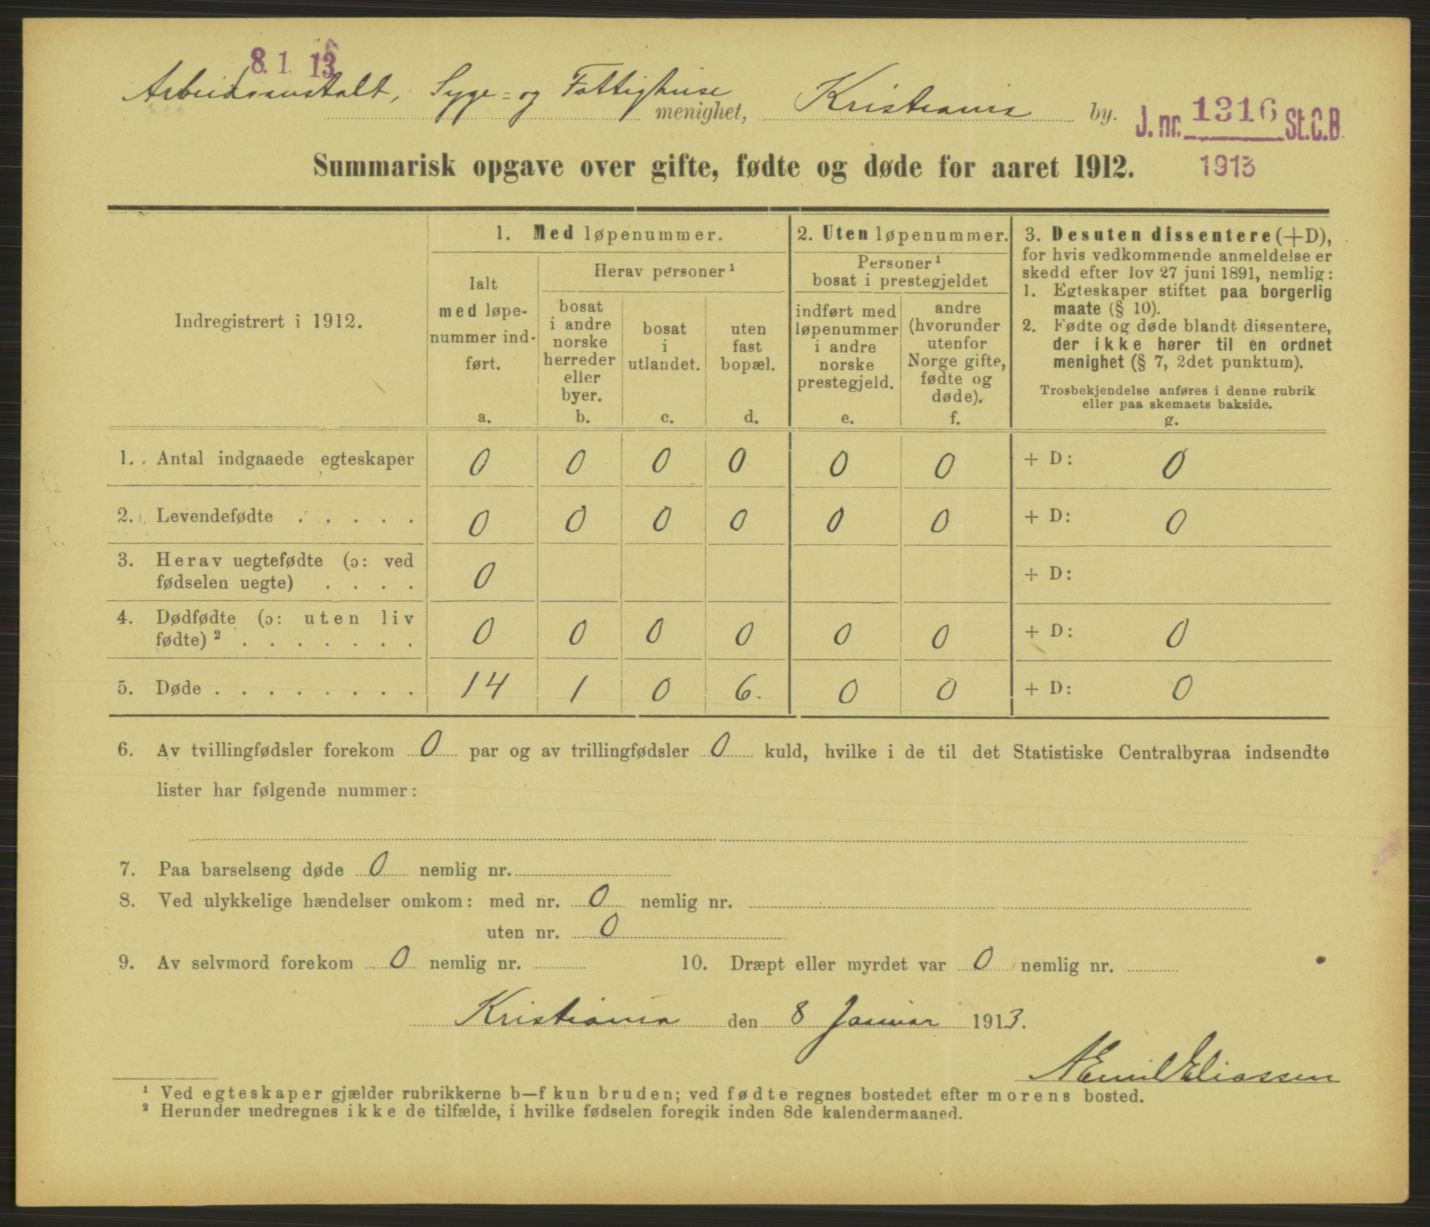 8. 1 13
Arbeidsanstalt, Syge- og Fattighuse menighet, Kristiania by.
J. nr. 1316 St.C.B.
1913
Summarisk opgave over gifte, fødte og døde for aaret 1912.
Indregistrert i 1912.
1. Med løpenummer.
Ialt
med løpe-
nummer ind-
ført.
a.
Herav personer ¹
bosat
i andre
norske
herreder
eller
byer.
b.
bosat
i
utlandet.
c.
uten
fast
bopæl.
d.
2. Uten løpenummer.
Personer ¹
bosat i prestegjeldet
indført med
løpenummer
i andre
norske
prestegjeld.
e.
andre
(hvorunder
utenfor
Norge gifte,
fødte og
døde).
f.
3. Desuten dissentere (+D),
for hvis vedkommende anmeldelse er
skedd efter lov 27 juni 1891, nemlig:
1. Egteskaper stiftet paa borgerlig
maate (§ 10).
2. Fødte og døde blandt dissentere,
der ikke hører til en ordnet
menighet (§ 7, 2det punktum).
Trosbekjendelse anføres i denne rubrik
eller paa skemaets bakside.
g.
1. Antal indgaaede egteskaper 0 0 0 0 0 0 + D: 0
2. Levendefødte . . . . . 0 0 0 0 0 0 + D: 0
3. Herav uegtefødte (ɔ: ved
fødselen uegte) . . . . 0 + D:
4. Dødfødte (ɔ: uten liv
fødte) ² . . . . . . . 0 0 0 0 0 0 + D: 0
5. Døde . . . . . . . . 14 1 0 6. 0 0 + D: 0
6. Av tvillingfødsler forekom 0 par og av trillingfødsler 0 kuld, hvilke i de til det Statistiske Centralbyraa indsendte
lister har følgende nummer:
7. Paa barselseng døde 0 nemlig nr.
8. Ved ulykkelige hændelser omkom: med nr. 0 nemlig nr.
uten nr. 0
9. Av selvmord forekom 0 nemlig nr. 10. Dræpt eller myrdet var 0 nemlig nr.
Kristiania den 8 Januar 1913.
N Emil Eliassen
¹ Ved egteskaper gjælder rubrikkerne b—f kun bruden; ved fødte regnes bostedet efter morens bosted.
² Herunder medregnes ikke de tilfælde, i hvilke fødselen foregik inden 8de kalendermaaned.